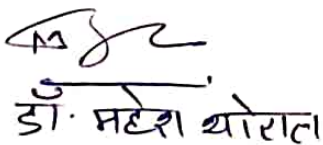 डॉ. महेश थोरात